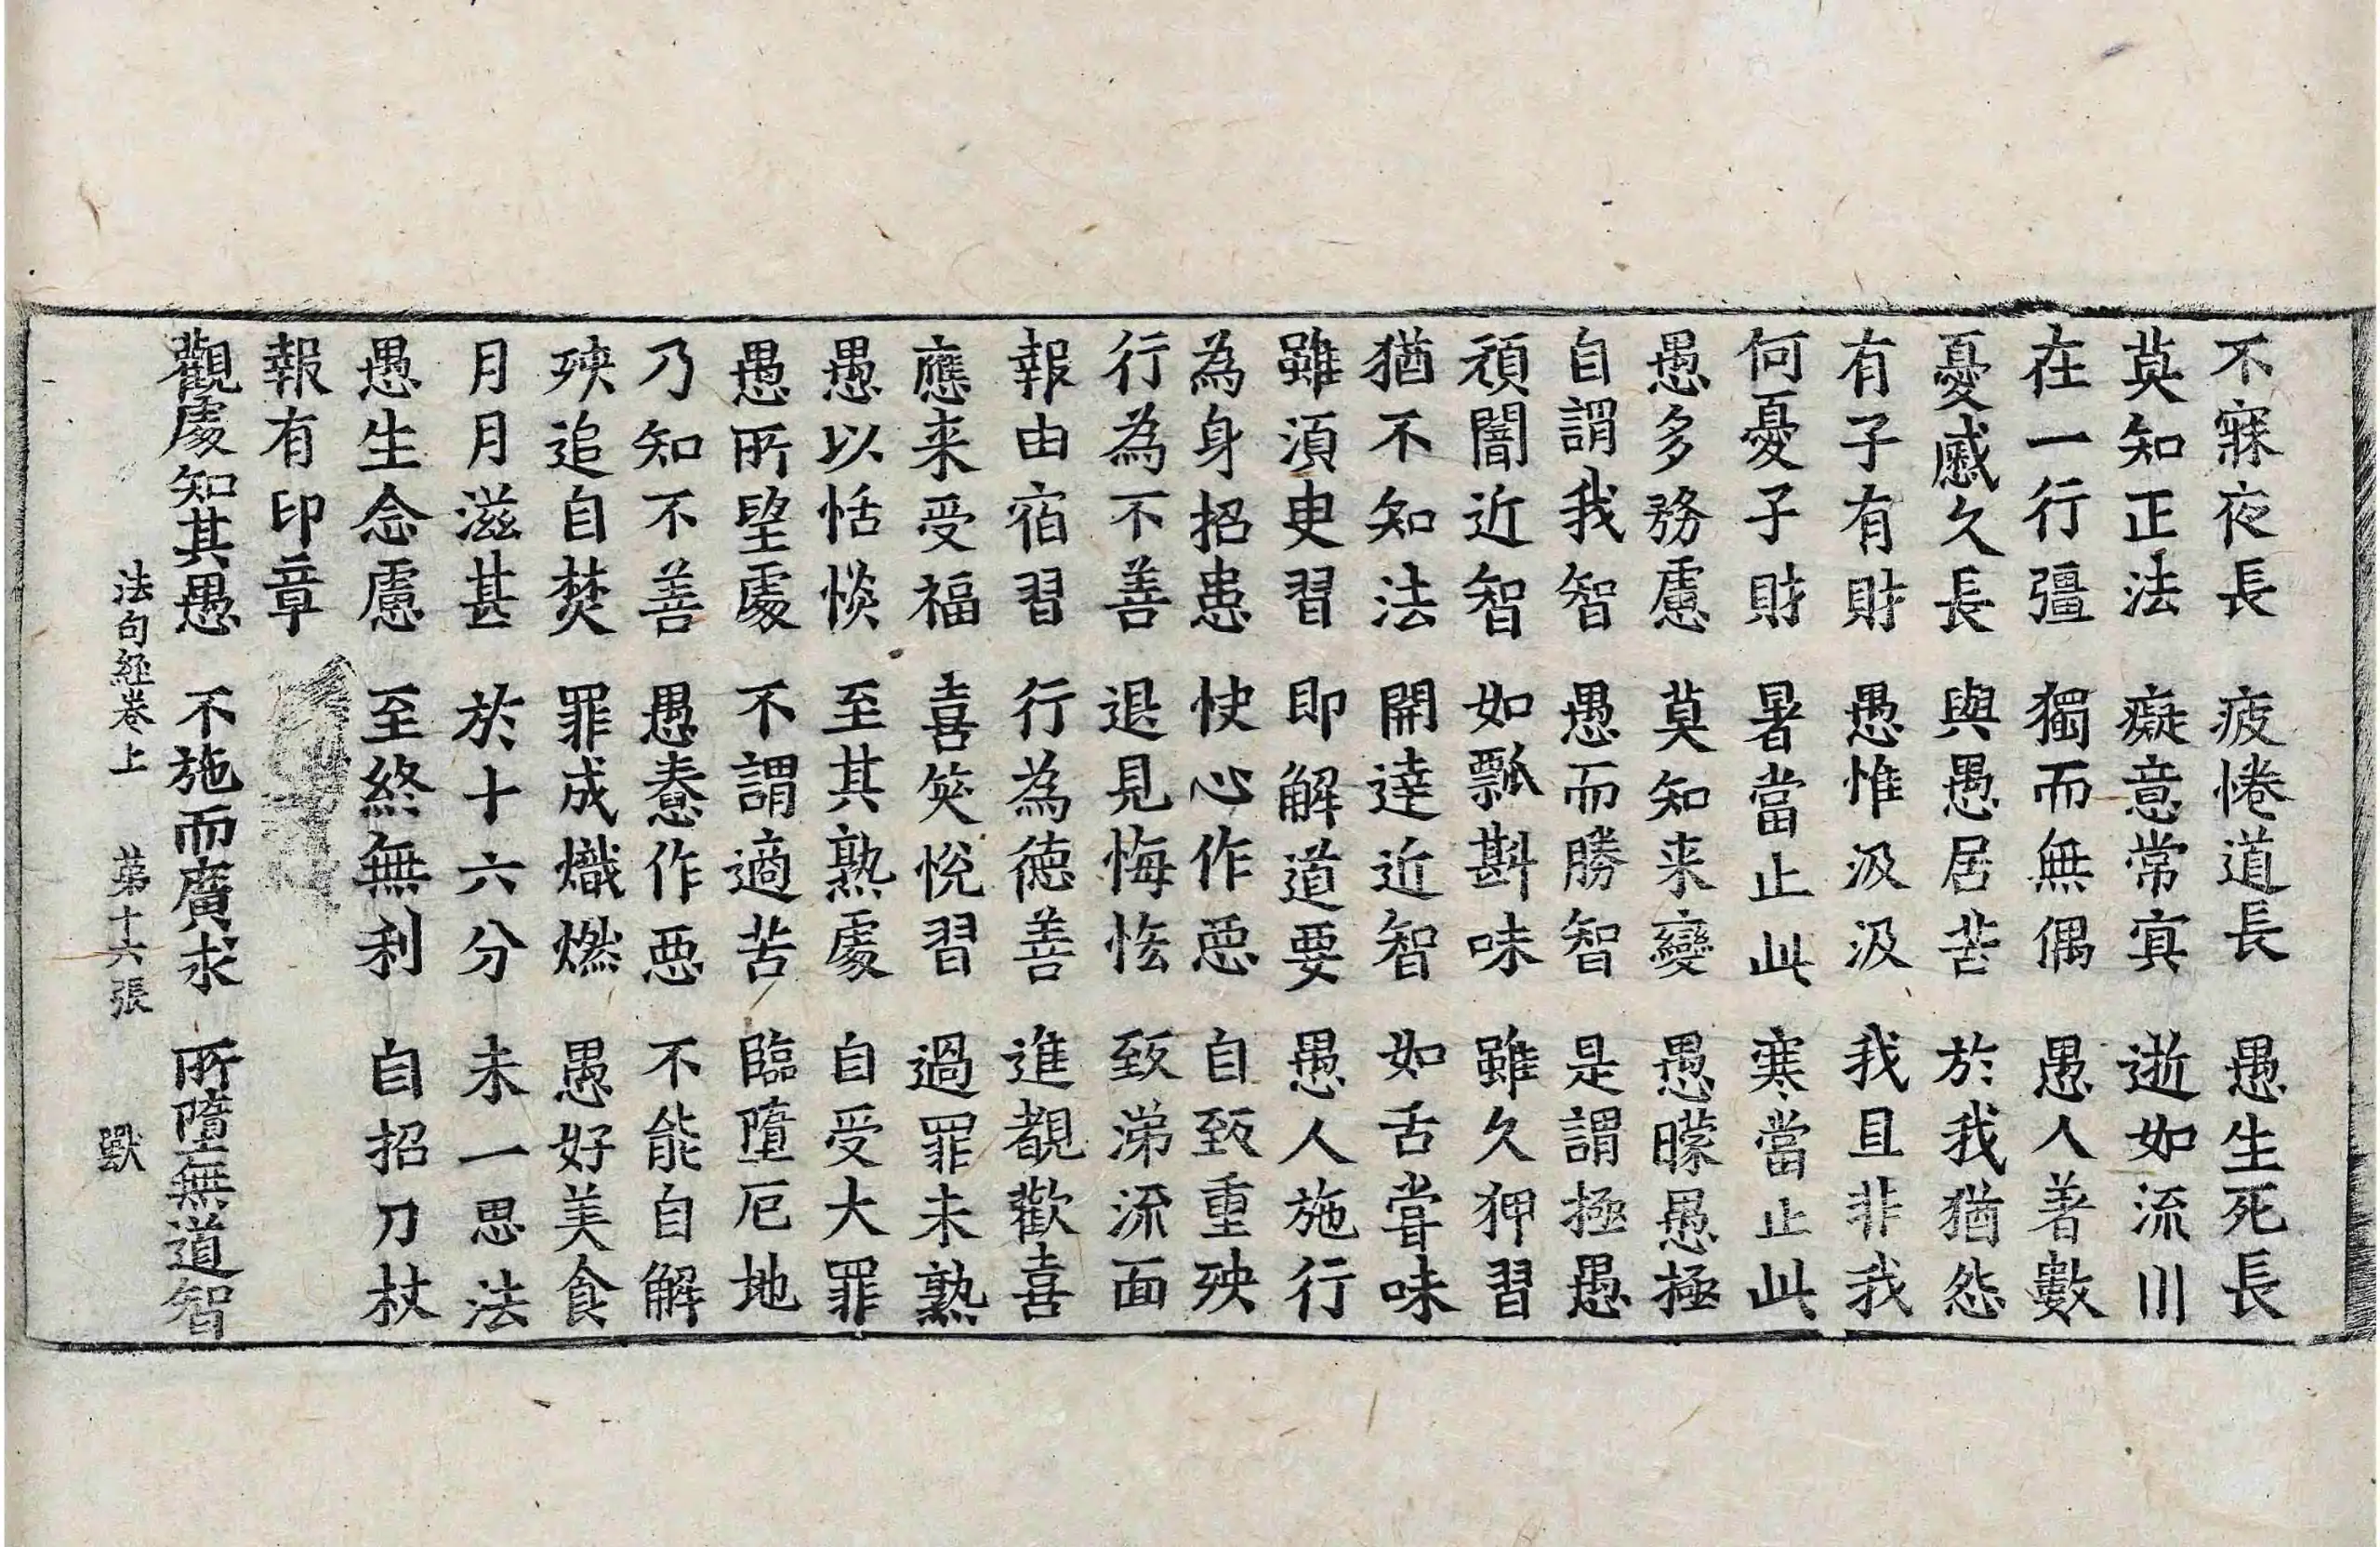 不寐夜長 疲惓道長 愚生死長
莫知正法 癡意常㝠 逝如流川
在一行彊 獨而無偶 愚人著數
憂慼久長 與愚居苦 於我猶怨
有子有財 愚惟汲汲 我且非我
何憂子財 暑當止此 寒當止此
愚多務慮 莫知来變 愚曚愚極
自謂我智 愚而勝智 是謂極愚
頑闇近智 如瓢斟味 雖久狎習
猶不知法 開達近智 如舌甞味
雖湏臾習 即解道要 愚人施行
為身招患 快心作惡 自致重殃
行為不善 退見悔悋 致涕流面
報由宿習 行為德善 進覩歡喜
應来受福 喜笑悅習 過罪未熟
愚以恬惔 至其熟處 自受大罪
愚所望處 不謂適苦 臨墮厄地
乃知不善 愚惷作惡 不能自解
殃追自焚 罪成熾燃 愚好美食
月月滋甚 於十六分 未一思法
愚生念慮 至終無利 自招刀杖
報有印章
觀處知其愚 不施而廣求 所墮無道智
法句經卷上 第十六張 獸